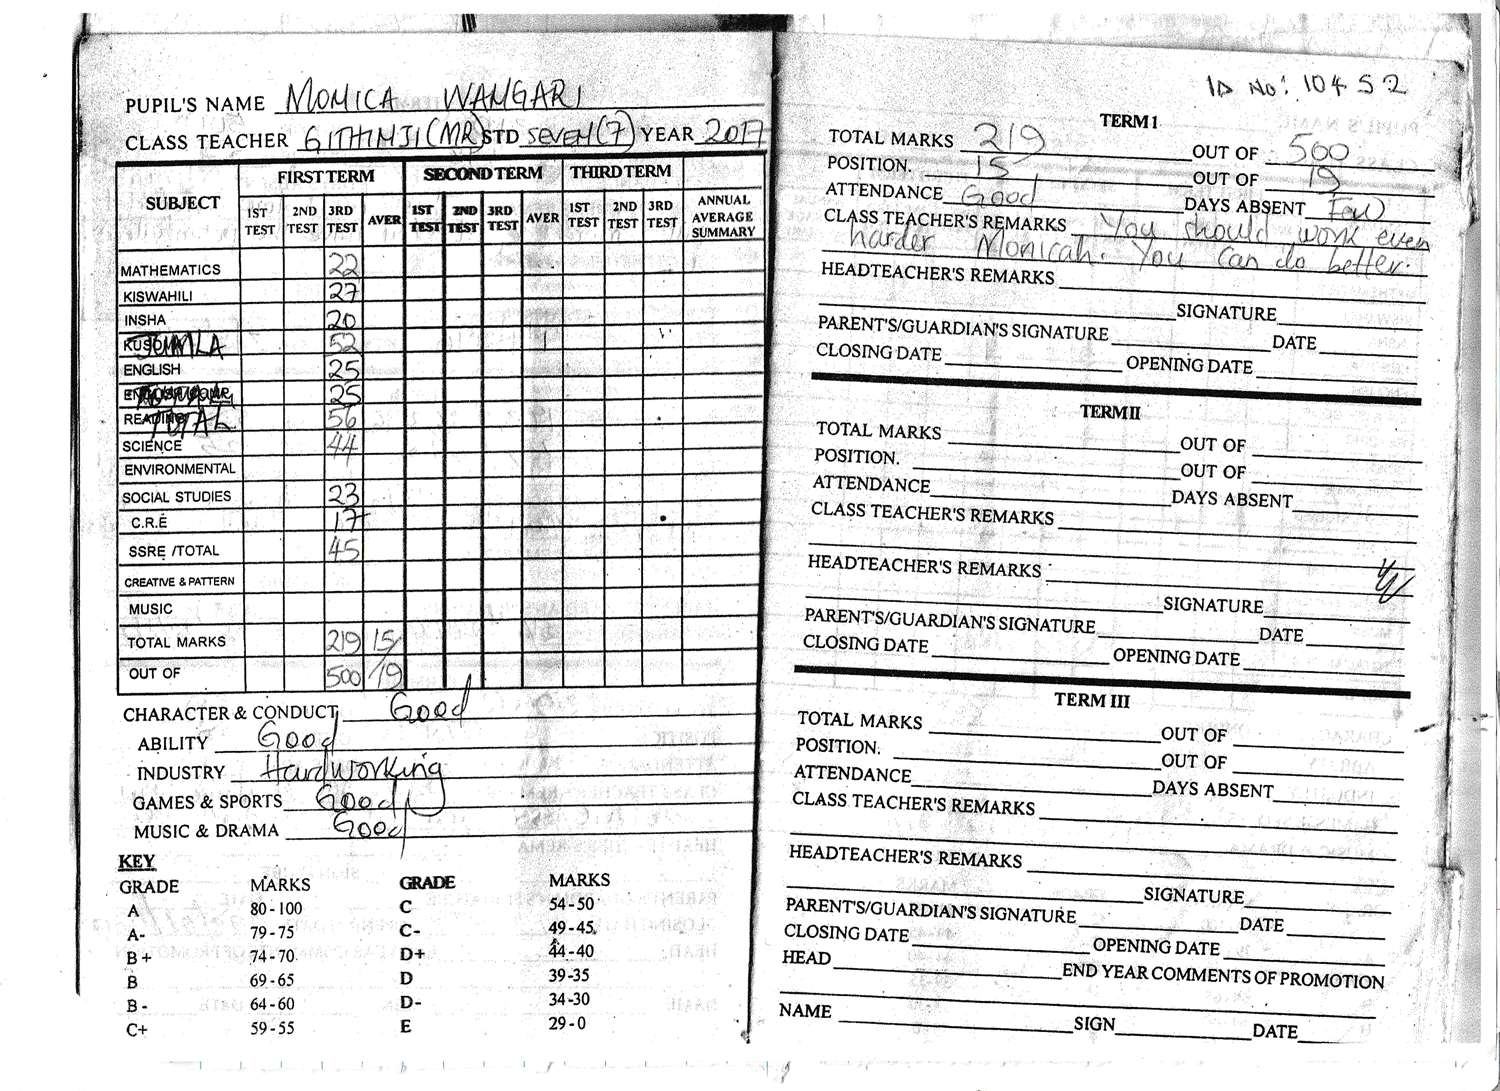 PUPIL'S NAME MONICA WANGARI
CLASS TEACHER GITHINJI (MR) STD SEVEN (7) YEAR 2017
SUBJECT FIRST TERM SECOND TERM THIRD TERM ANNUAL AVERAGE SUMMARY
1ST TEST 2ND TEST 3RD TEST AVER 1ST TEST 2ND TEST 3RD TEST AVER 1ST TEST 2ND TEST 3RD TEST
MATHEMATICS 22
KISWAHILI 27
INSHA 20
JUMLA 52
ENGLISH 25
25
READING TOTAL 56
SCIENCE 44
ENVIRONMENTAL
SOCIAL STUDIES 23
C.R.E 17
SSRE /TOTAL 45
CREATIVE & PATTERN
MUSIC
TOTAL MARKS 219 15/
OUT OF 500 /19
CHARACTER & CONDUCT Good
ABILITY Good
INDUSTRY Hardworking
GAMES & SPORTS Good
MUSIC & DRAMA Good
KEY
GRADE MARKS GRADE MARKS
A 80-100 C 54-50
A- 79-75 C- 49-45
B+ 74-70 D+ 44-40
B 69-65 D 39-35
B- 64-60 D- 34-30
C+ 59-55 E 29-0
ID No: 10452
TERM I
TOTAL MARKS 219 OUT OF 500
POSITION. 15 OUT OF 19
ATTENDANCE Good DAYS ABSENT Few
CLASS TEACHER'S REMARKS You should work even
harder Monicah. You can do better.
HEADTEACHER'S REMARKS
SIGNATURE
PARENT'S/GUARDIAN'S SIGNATURE DATE
CLOSING DATE OPENING DATE
TERM II
TOTAL MARKS OUT OF
POSITION. OUT OF
ATTENDANCE DAYS ABSENT
CLASS TEACHER'S REMARKS
HEADTEACHER'S REMARKS
SIGNATURE
PARENT'S/GUARDIAN'S SIGNATURE DATE
CLOSING DATE OPENING DATE
TERM III
TOTAL MARKS OUT OF
POSITION. OUT OF
ATTENDANCE DAYS ABSENT
CLASS TEACHER'S REMARKS
HEADTEACHER'S REMARKS
SIGNATURE
PARENT'S/GUARDIAN'S SIGNATURE DATE
CLOSING DATE OPENING DATE
HEAD END YEAR COMMENTS OF PROMOTION
NAME SIGN DATE